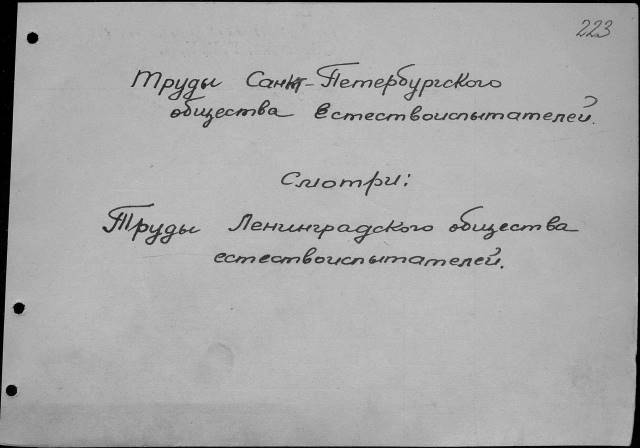 223
Труды Санкт-Петербургского
общества Естествоиспытателей.
Смотри:
Труды Ленинградского общества
естествоиспытателей.